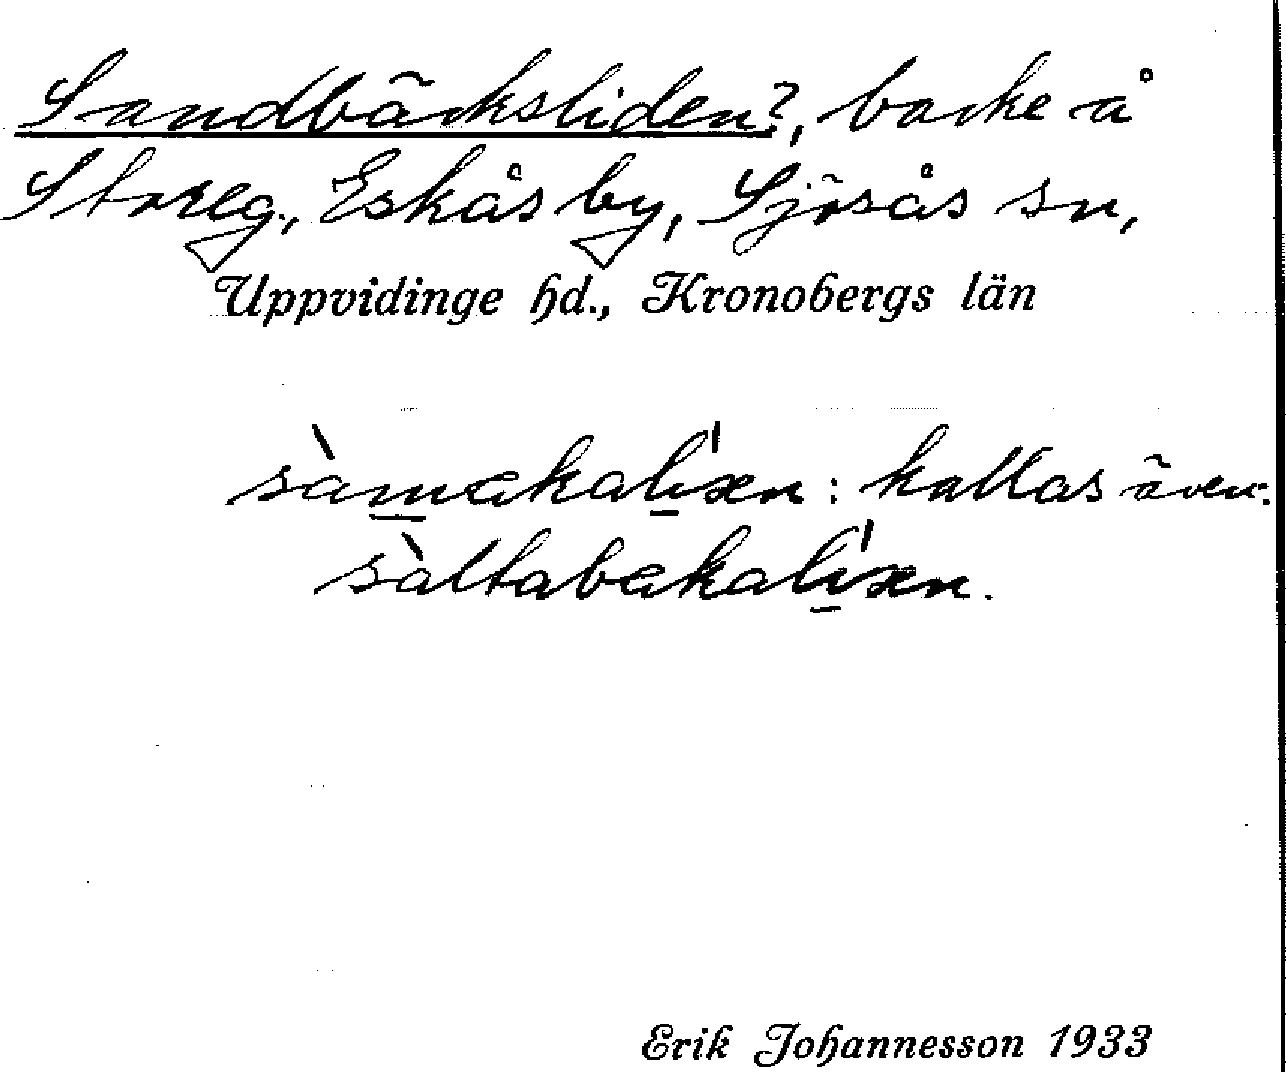 Sandbäcksliden?, backe å
Storeg., Eskås by, Sjösås sn,
Uppvidinge hd., Kronobergs län
kallas även
Erik Johannesson 1933